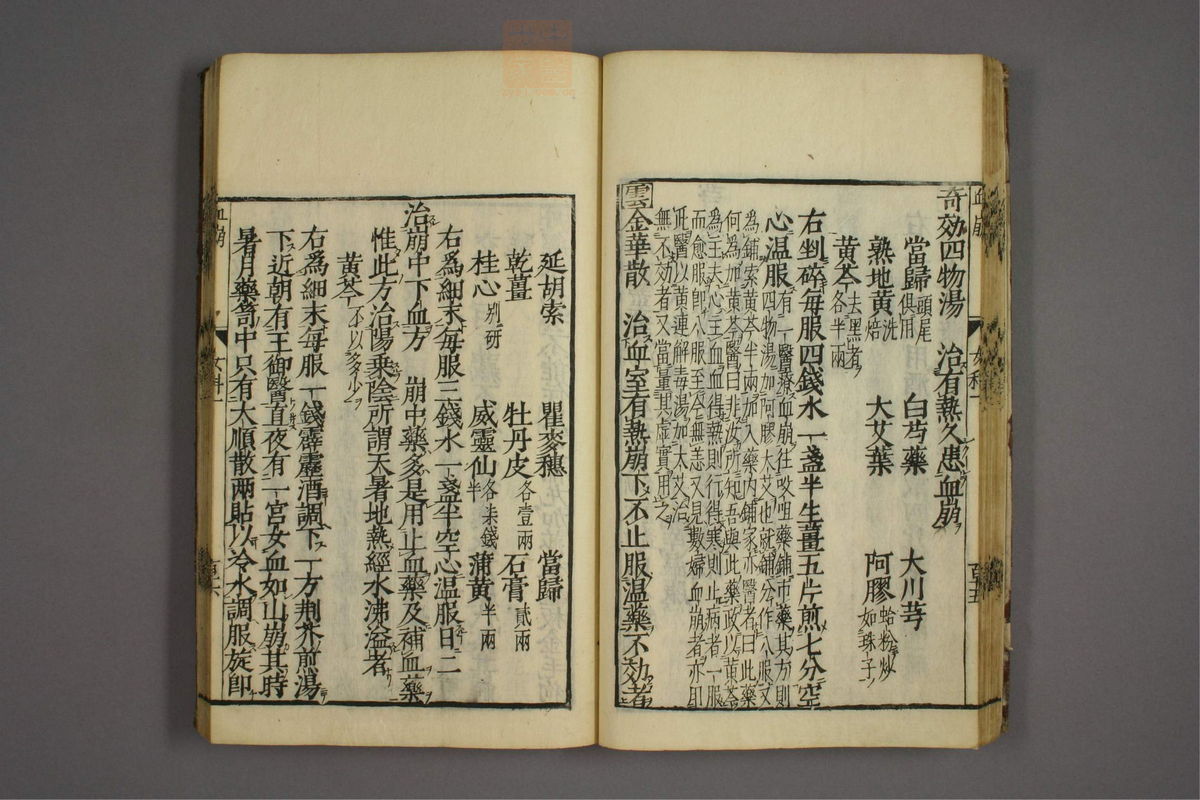 奇効四物湯 治有熱久患血崩
當歸頭尾俱用 白芍藥 大川芎
熟地黄洗焙 大艾葉 阿膠蛤粉炒如珠子
黄芩去黑者各半兩
右剉碎每服四錢水一盞半生薑五片煎七分空
心温服有一醫療血崩往咬咀藥鋪市藥其方則
四物湯加阿膠大艾也就鋪分作八服又
為鋪索黄芩半兩加入藥内鋪家亦醫者曰此藥
何為加黄芩醫曰非汝所知吾與此藥政以黄芩
為主夫心主血血得熱則行得寒則止病者一服
而愈服即八服至今無恙又見數婦血崩者亦即
此醫以黄連解毒湯加大艾治
無不効者又當量其虚實用之
雲金華散 治血室有熱崩下不止服温藥不効者
血崩 女科一 百五
延胡索 瞿麥穗 當歸
乾薑 牡丹皮各壹兩 石膏貳兩
桂心別研 威靈仙各柒錢半 蒲黄半兩
右為細末每服三錢水一盞半空心温服日二
治崩中下血方 崩中藥多是用止血藥及補血藥
惟此方治陽乗陰所謂天暑地熱經水沸溢者
黄芩不以多少
右為細末每服一錢霹靂酒調下一方荆芥煎湯
下近朝有王御醫直夜有一宮女血如山崩其時
暑月藥笥中只有大順散兩貼以冷水調服旋即
血崩 女科一 百六